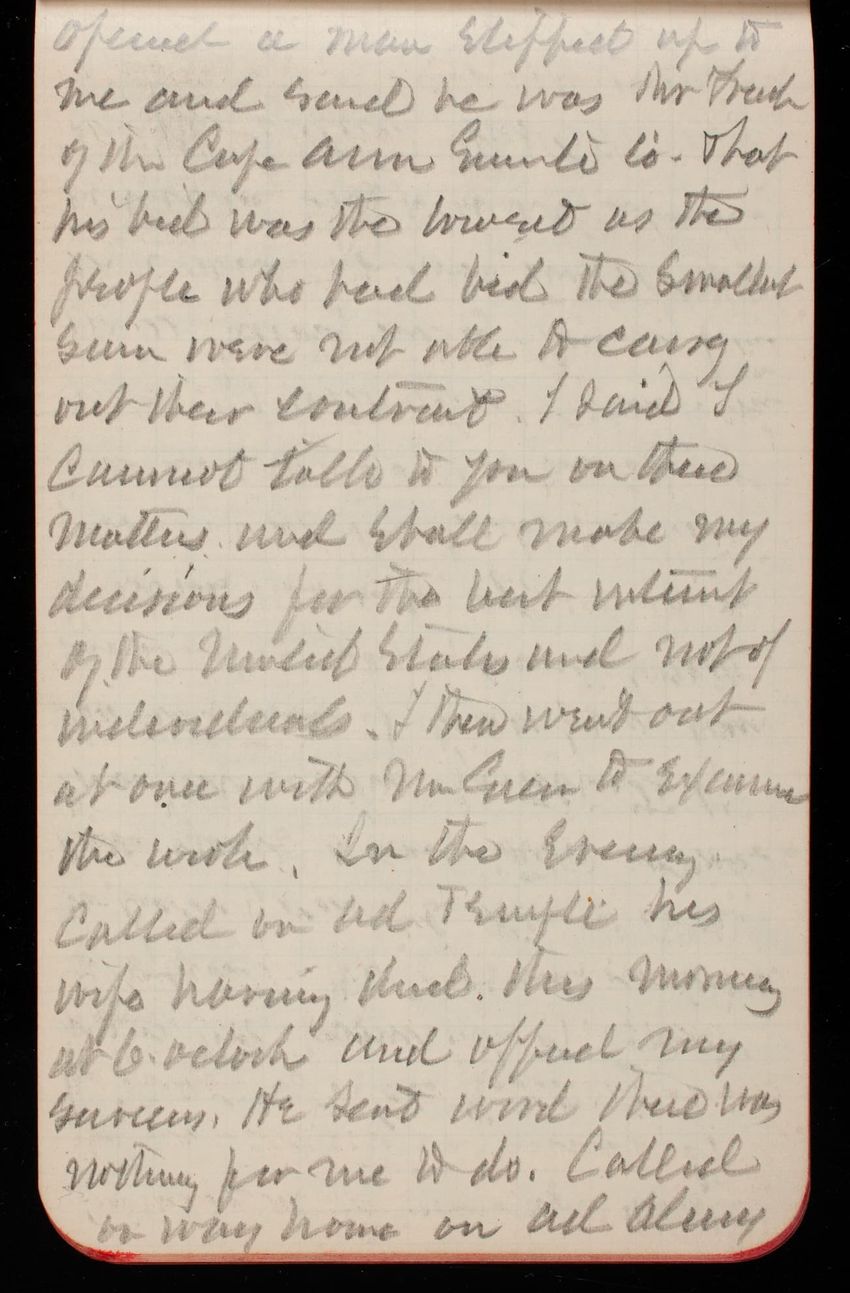 opened a man stepped up to
me and said he was the Treas
of the Cape Ann Granite Co. That
his bid was the lowest as the
people who had bid the smallest
sum were not able to carry
out their contract. I said I
cannot talk to you on these
matters and shall make my
decisions for the best interest
of the United States and not of
individuals. I then went out
at once with to examine
the work. In the Evening
Called on Ad Temple his
wife having died this morning
at 6 oclock and offered my
services. He sent word there was
nothing for me to do. Called
on way home on Ad Almy